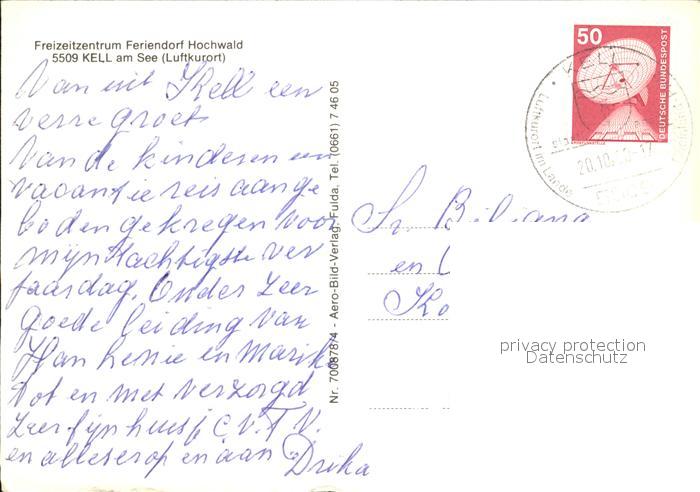 Freizeitzentrum Feriendorf Hochwald
5509 KELL am See (Luftkurort)
Van uit Kell een
verre groet
Van de kinderen een
vacantie reis aange
boden gekregen voor
mijn tachtigste ver
jaardag. Onder zeer
goede leiding van
Han Lenie en Marik
Tot en met verzorgd
Zeer fijn huisj C.V. T.V.
en alles erop en aan
Drika
Nr. 70087874 - Aero-Bild-Verlag, Fulda, Tel. (0661) 7 46 05
50
DEUTSCHE BUNDESPOST
KELL
Luftkurort im Lande
20.10.
5509
Sr. Biliana
en
Ko
privacy protection
Datenschutz